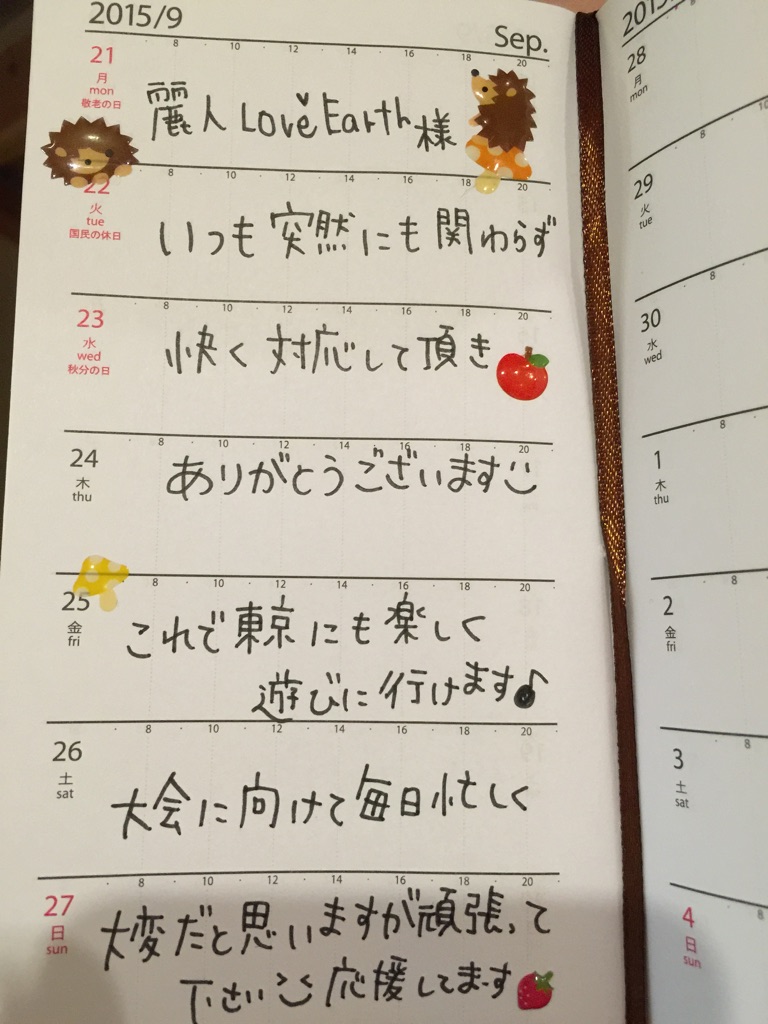 2015/9
Sep.
8 10 12 14 16 18 20
21
月
mon
敬老の日
麗人 Love Earth様
8 10 12 14 16 18 20
22
火
tue
国民の休日
いつも 突然にも 関わらず
8 10 12 14 16 18 20
23
水
wed
秋分の日
快く 対応して 頂き
8 10 12 14 16 18 20
24
木
thu
ありがとうございます
8 10 12 14 16 18 20
25
金
fri
これで 東京にも 楽しく
遊びに 行けます♪
8 10 12 14 16 18 20
26
土
sat
大会に 向けて 毎日 忙しく
8 10 12 14 16 18 20
27
日
sun
大変だと 思いますが 頑張って
下さい 応援してます
28
月
mon
8
29
火
tue
8
30
水
wed
8
1
木
thu
8
2
金
fri
8
3
土
sat
8
4
日
sun